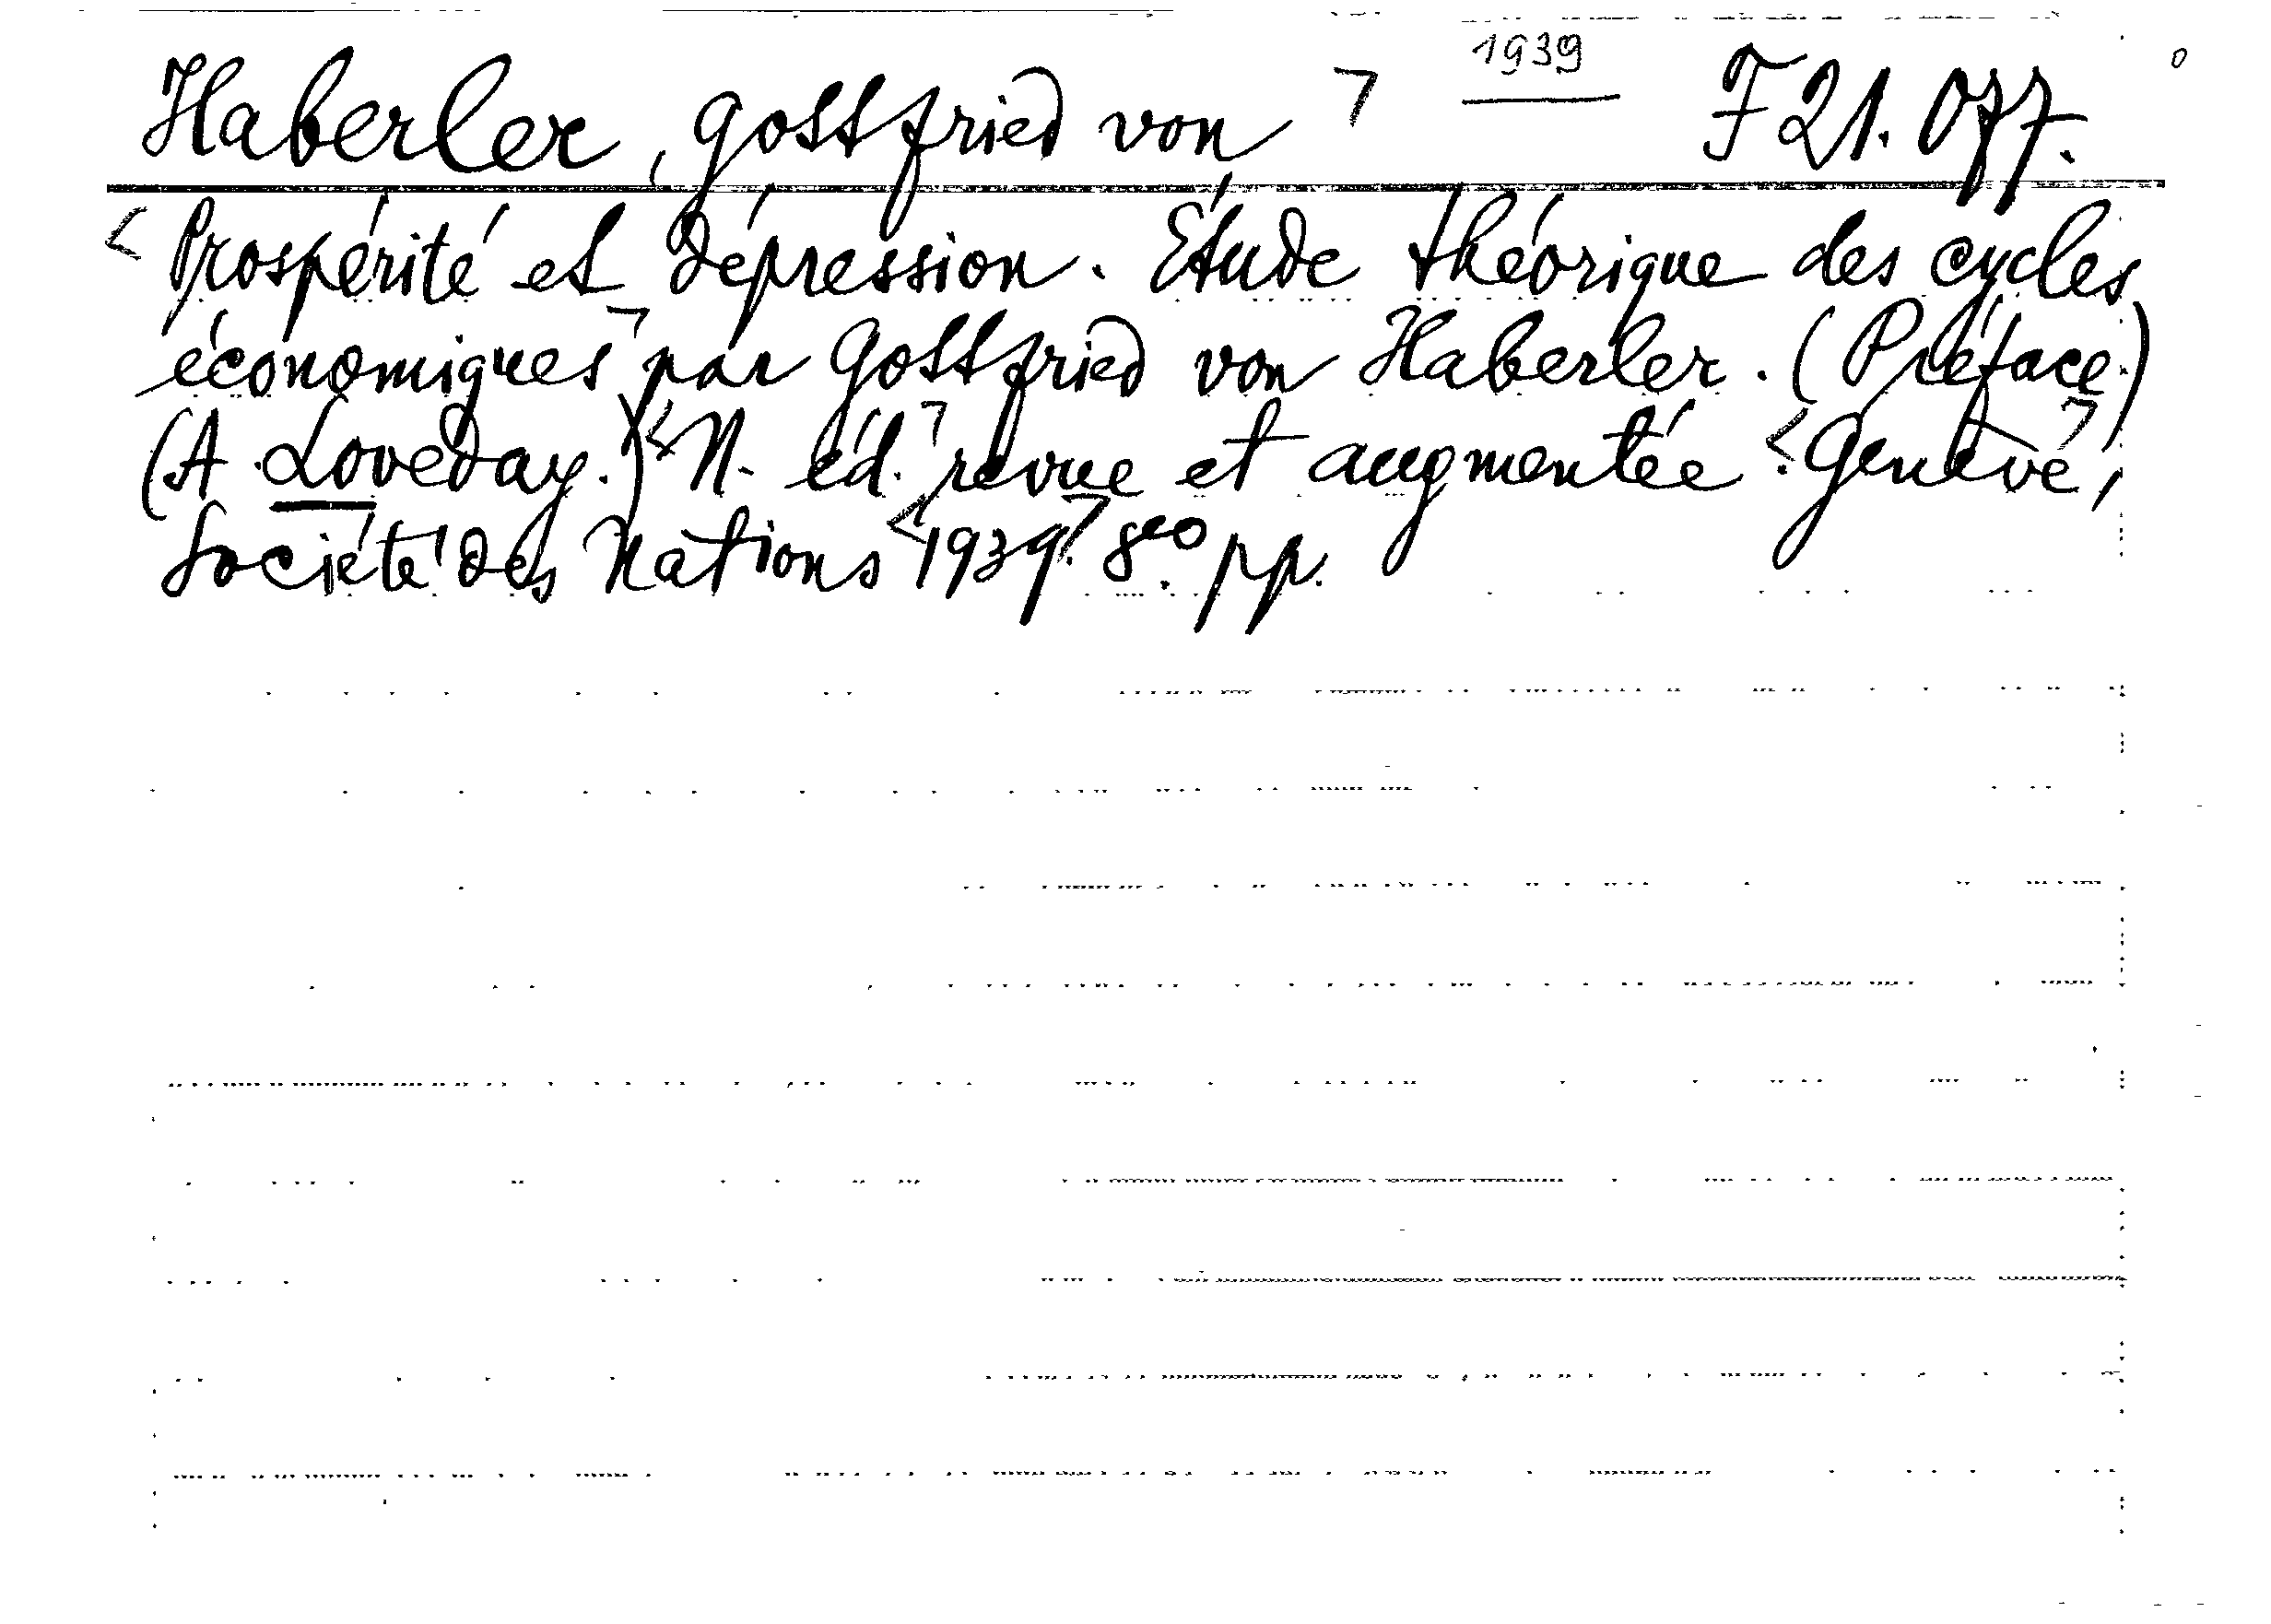 Haberler, Gottfried von ⌝ 1939 F 21.077.
< Prospérité et dépression. Étude théorique des cycles
économiques ⌝ par Gottfried von Haberler. (Préface.)
(A. Loveday.) < N. éd. ⌝ revue et augmentée. < Genève ⌝,
Société des Nations < 1939. ⌝ 8vo. pp.